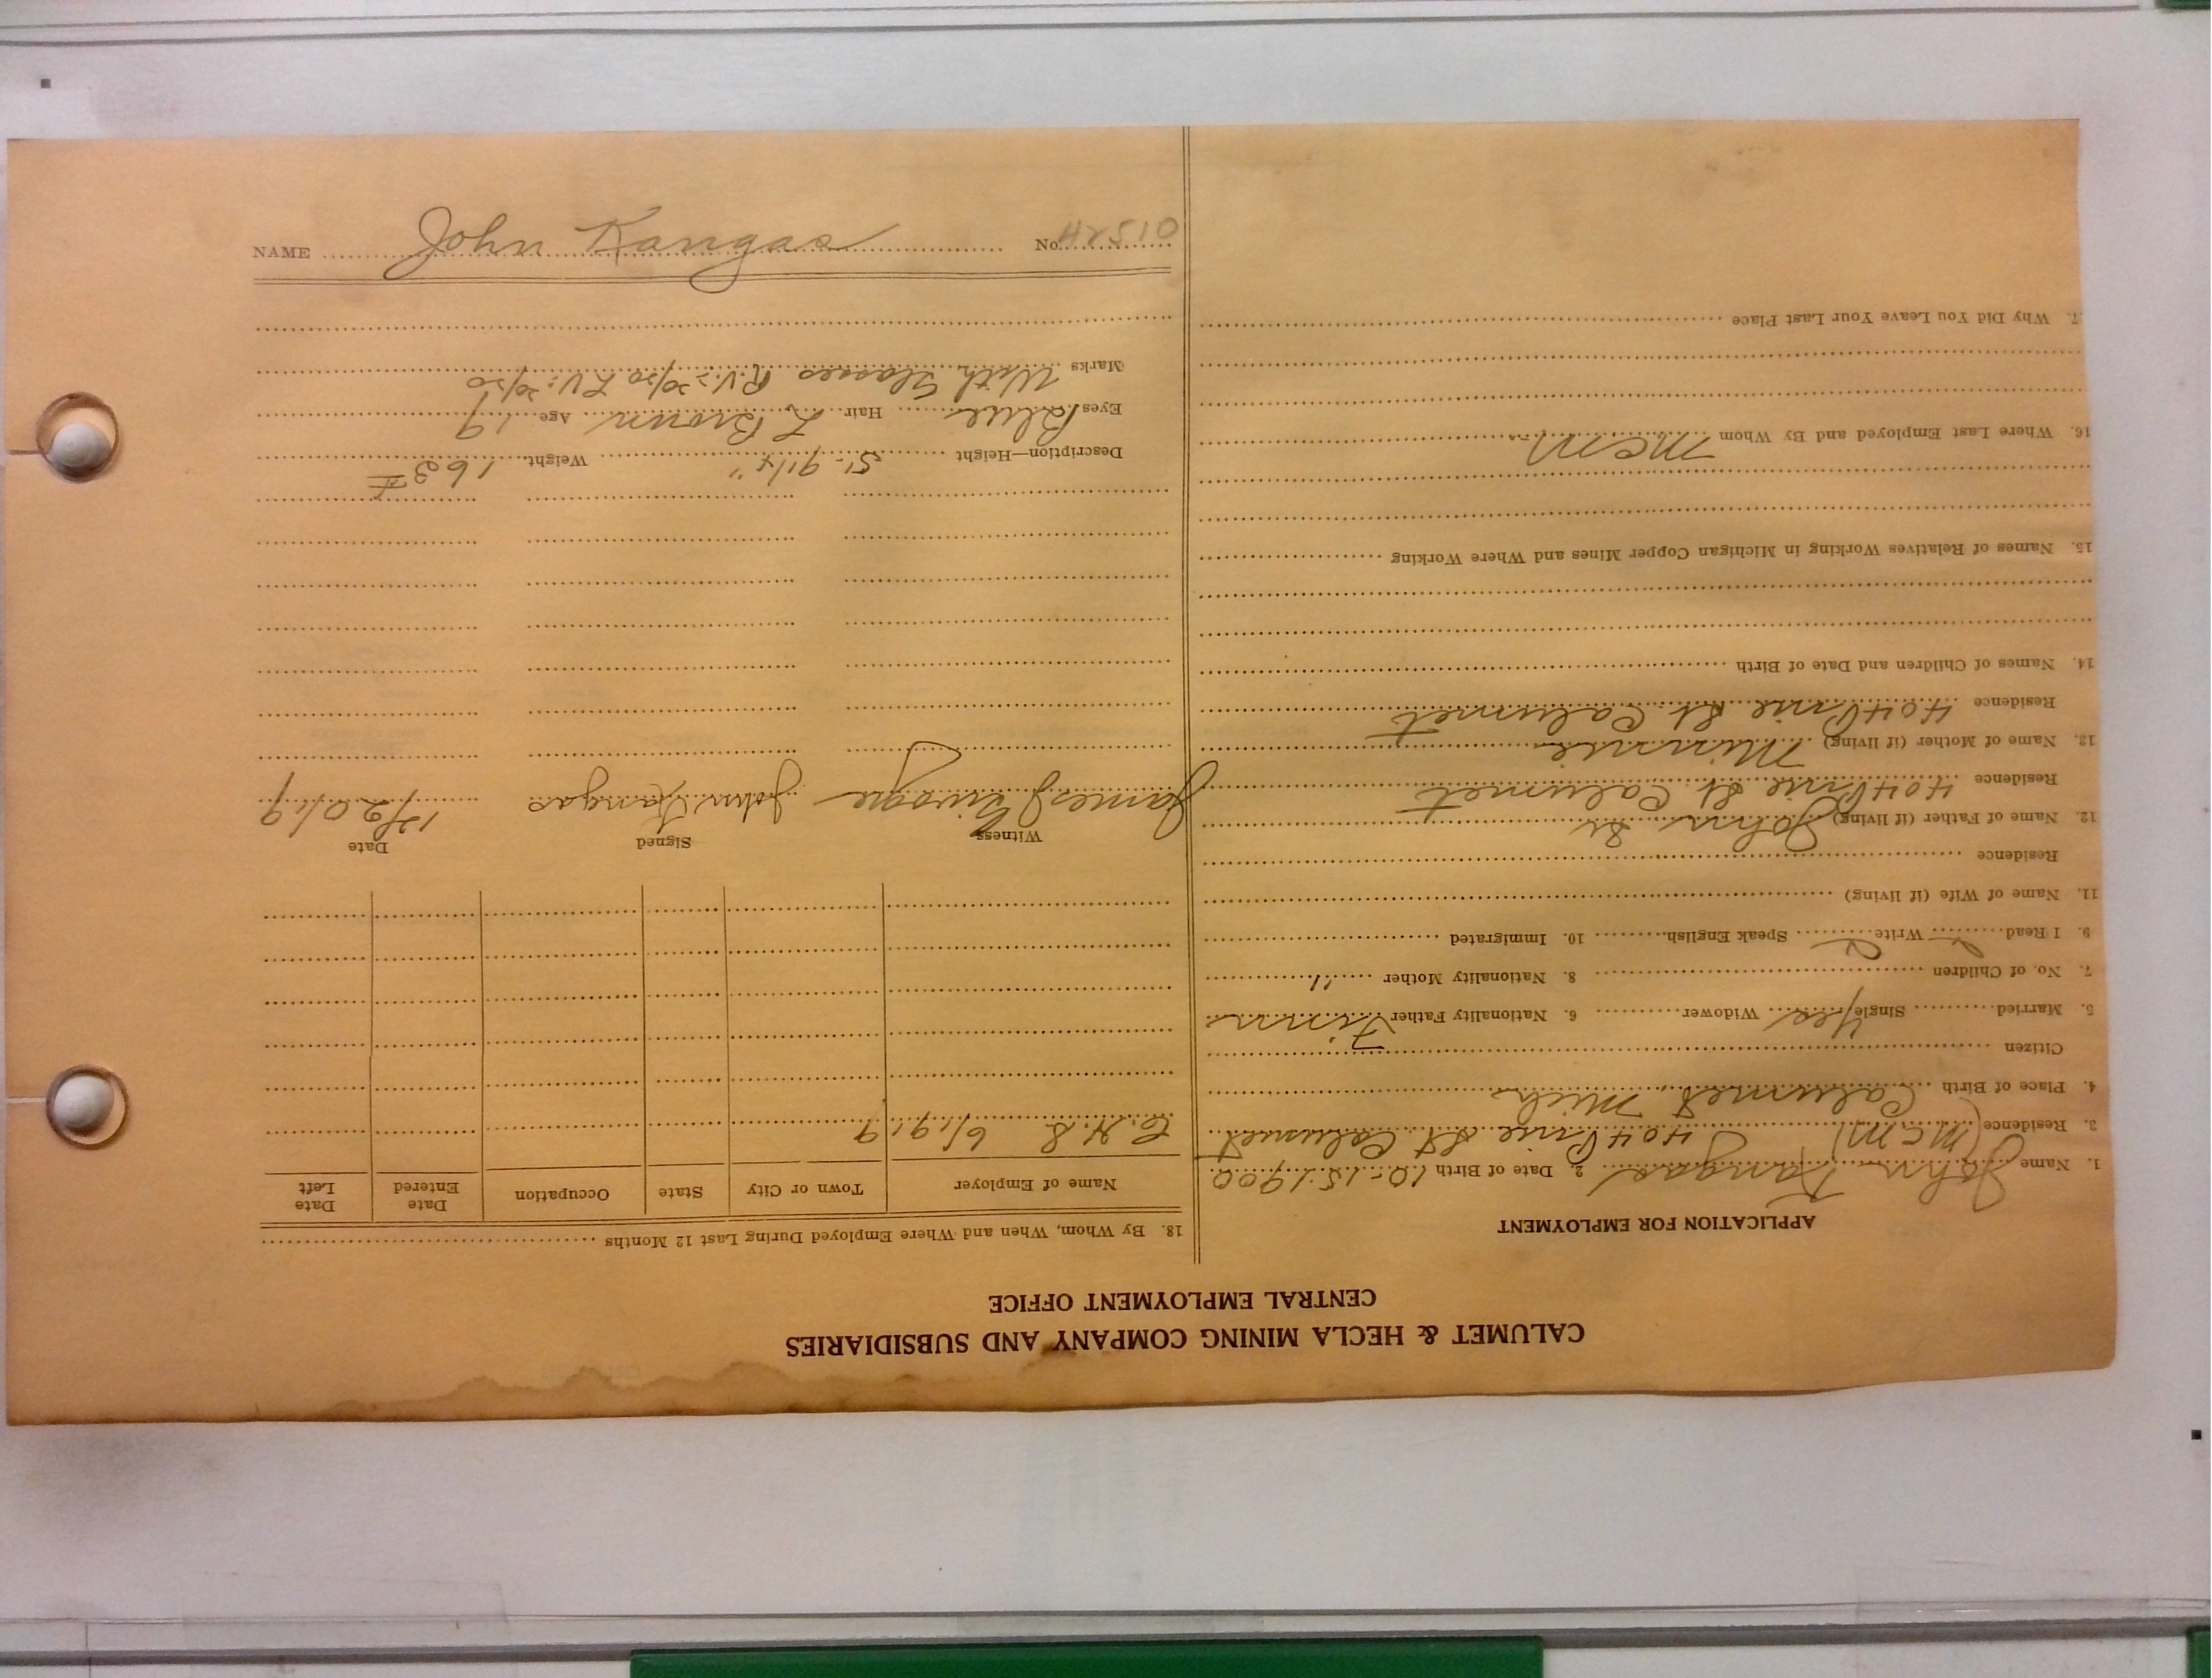 CALUMET & HECLA MINING COMPANY AND SUBSIDIARIES
CENTRAL EMPLOYMENT OFFICE
APPLICATION FOR EMPLOYMENT
1. Name John Kangas 2. Date of Birth 10-15-1900
3. Residence (McM) 404 Pine St Calumet
4. Place of Birth Calumet, Mich
Citizen
5. Married Single Yes Widower 6. Nationality Father Finn
7. No. of Children 8. Nationality Mother "
9. I Read Write Speak English 10. Immigrated
11. Name of Wife (if living)
Residence
12. Name of Father (if living) John Sr
Residence 404 Pine St Calumet
13. Name of Mother (if living) Minnie
Residence 404 Pine St Calumet
14. Names of Children and Date of Birth
15. Names of Relatives Working in Michigan Copper Mines and Where Working
16. Where Last Employed and By Whom McM
7. Why Did You Leave Your Last Place
18. By Whom, When and Where Employed During Last 12 Months
Name of Employer Town or City State Occupation Date Entered Date Left
C. H. S 6/1919
Witness Signed Date
James J John Kangas 1/20/19
Description—Height 5'-9 1/4" Weight 163
Eyes Blue Hair L Brown Age 19
Marks With Glasses R.V. = 20/20 L V = 20/20
NAME John Kangas No. 42510